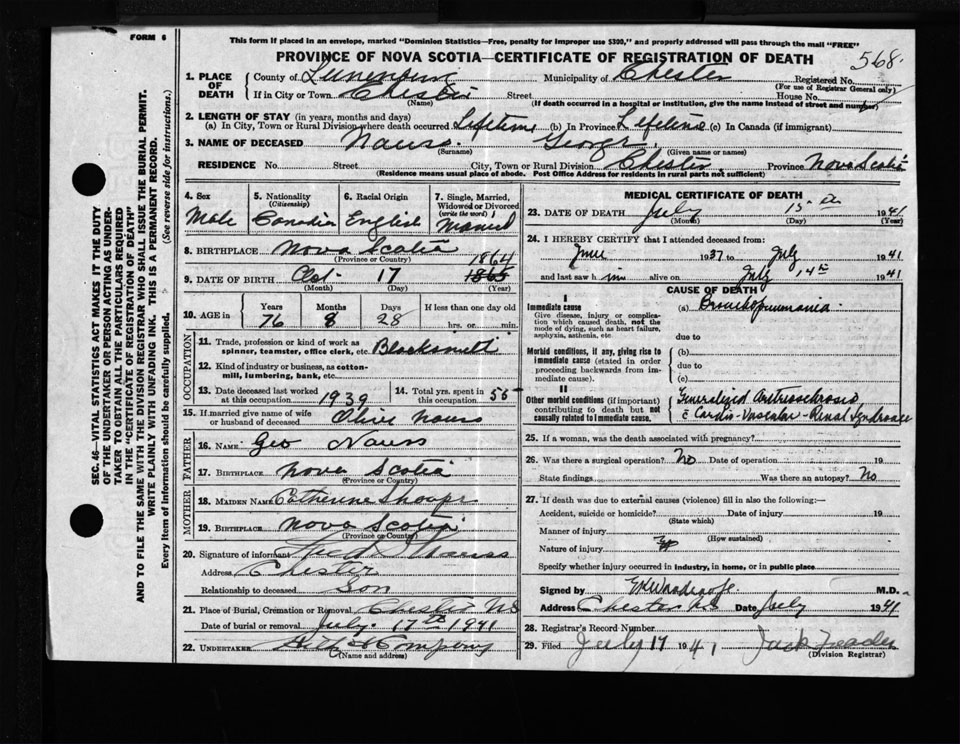 FORM 6
This form if placed in an envelope, marked "Dominion Statistics—Free, penalty for improper use $300," and properly addressed will pass through the mail "FREE"
PROVINCE OF NOVA SCOTIA—CERTIFICATE OF REGISTRATION OF DEATH
568
SEC. 46—VITAL STATISTICS ACT MAKES IT THE DUTY
OF THE UNDERTAKER OR PERSON ACTING AS UNDER-
TAKER TO OBTAIN ALL THE PARTICULARS REQUIRED
IN THE "CERTIFICATE OF REGISTRATION OF DEATH"
AND TO FILE THE SAME WITH THE DIVISION REGISTRAR WHO SHALL ISSUE THE BURIAL PERMIT.
WRITE PLAINLY WITH UNFADING INK. THIS IS A PERMANENT RECORD.
Every item of Information should be carefully supplied. (See reverse side for instructions.)
1. PLACE OF DEATH
County of Lunenburg Municipality of Chester Registered No.
(For use of Registrar General only)
If in City or Town Chester Street House No.
(Name) (If death occurred in a hospital or institution, give the name instead of street and number)
2. LENGTH OF STAY (in years, months and days)
(a) In City, Town or Rural Division where death occurred Lifetime (b) In Province Lifetime (c) In Canada (if immigrant)
3. NAME OF DECEASED Nauss George
(Surname) (Given name or names)
RESIDENCE No. Street City, Town or Rural Division Chester Province Nova Scotia
(Residence means usual place of abode. Post Office Address for residents in rural parts not sufficient)
4. Sex Male
5. Nationality (Citizenship) Canadian
6. Racial Origin English
7. Single, Married, Widowed or Divorced (write the word) Married
8. BIRTHPLACE Nova Scotia
(Province or Country)
1864
9. DATE OF BIRTH Oct. 17 1865
(Month) (Day) (Year)
10. AGE in Years Months Days If less than one day old
76 8 28 hrs. or min.
OCCUPATION
11. Trade, profession or kind of work as spinner, teamster, office clerk, etc. Blacksmith
12. Kind of industry or business, as cotton-mill, lumbering, bank, etc.
13. Date deceased last worked at this occupation 1939
14. Total yrs. spent in this occupation 55
15. If married give name of wife or husband of deceased Olive Nauss
FATHER
16. NAME Geo Nauss
17. BIRTHPLACE Nova Scotia
(Province or Country)
MOTHER
18. MAIDEN NAME Catherine
19. BIRTHPLACE Nova Scotia
(Province or Country)
20. Signature of informant Nauss
Address Chester
Relationship to deceased Son
21. Place of Burial, Cremation or Removal Chester NS
Date of burial or removal July 17th 1941
22. UNDERTAKER Company
(Name and address)
MEDICAL CERTIFICATE OF DEATH
23. DATE OF DEATH July 15th 1941
(Month) (Day) (Year)
24. I HEREBY CERTIFY that I attended deceased from:
June 1937 to July 1941
and last saw him alive on July 14th 1941
CAUSE OF DEATH
I
Immediate cause (a) Bronchopneumonia
Give disease, injury or complication which caused death, not the mode of dying, such as heart failure, asphyxia, asthenia, etc.
due to
Morbid conditions, if any, giving rise to immediate cause (stated in order proceeding backwards from immediate cause).
(b)
due to
(c)
II
Other morbid conditions (if important) contributing to death but not causally related to immediate cause.
Generalized Arteriosclerosis
c Cardio-Vascular-Renal Syndrome
25. If a woman, was the death associated with pregnancy?
26. Was there a surgical operation? No Date of operation 19
State findings Was there an autopsy? No
27. If death was due to external causes (violence) fill in also the following:—
Accident, suicide or homicide? Date of injury 19
(State which)
Manner of injury
(How sustained)
Nature of injury
Specify whether injury occurred in industry, in home, or in public place
Signed by M.D.
Address Chester NS Date July 1941
28. Registrar's Record Number
29. Filed July 17 1941 Jack
(Division Registrar)